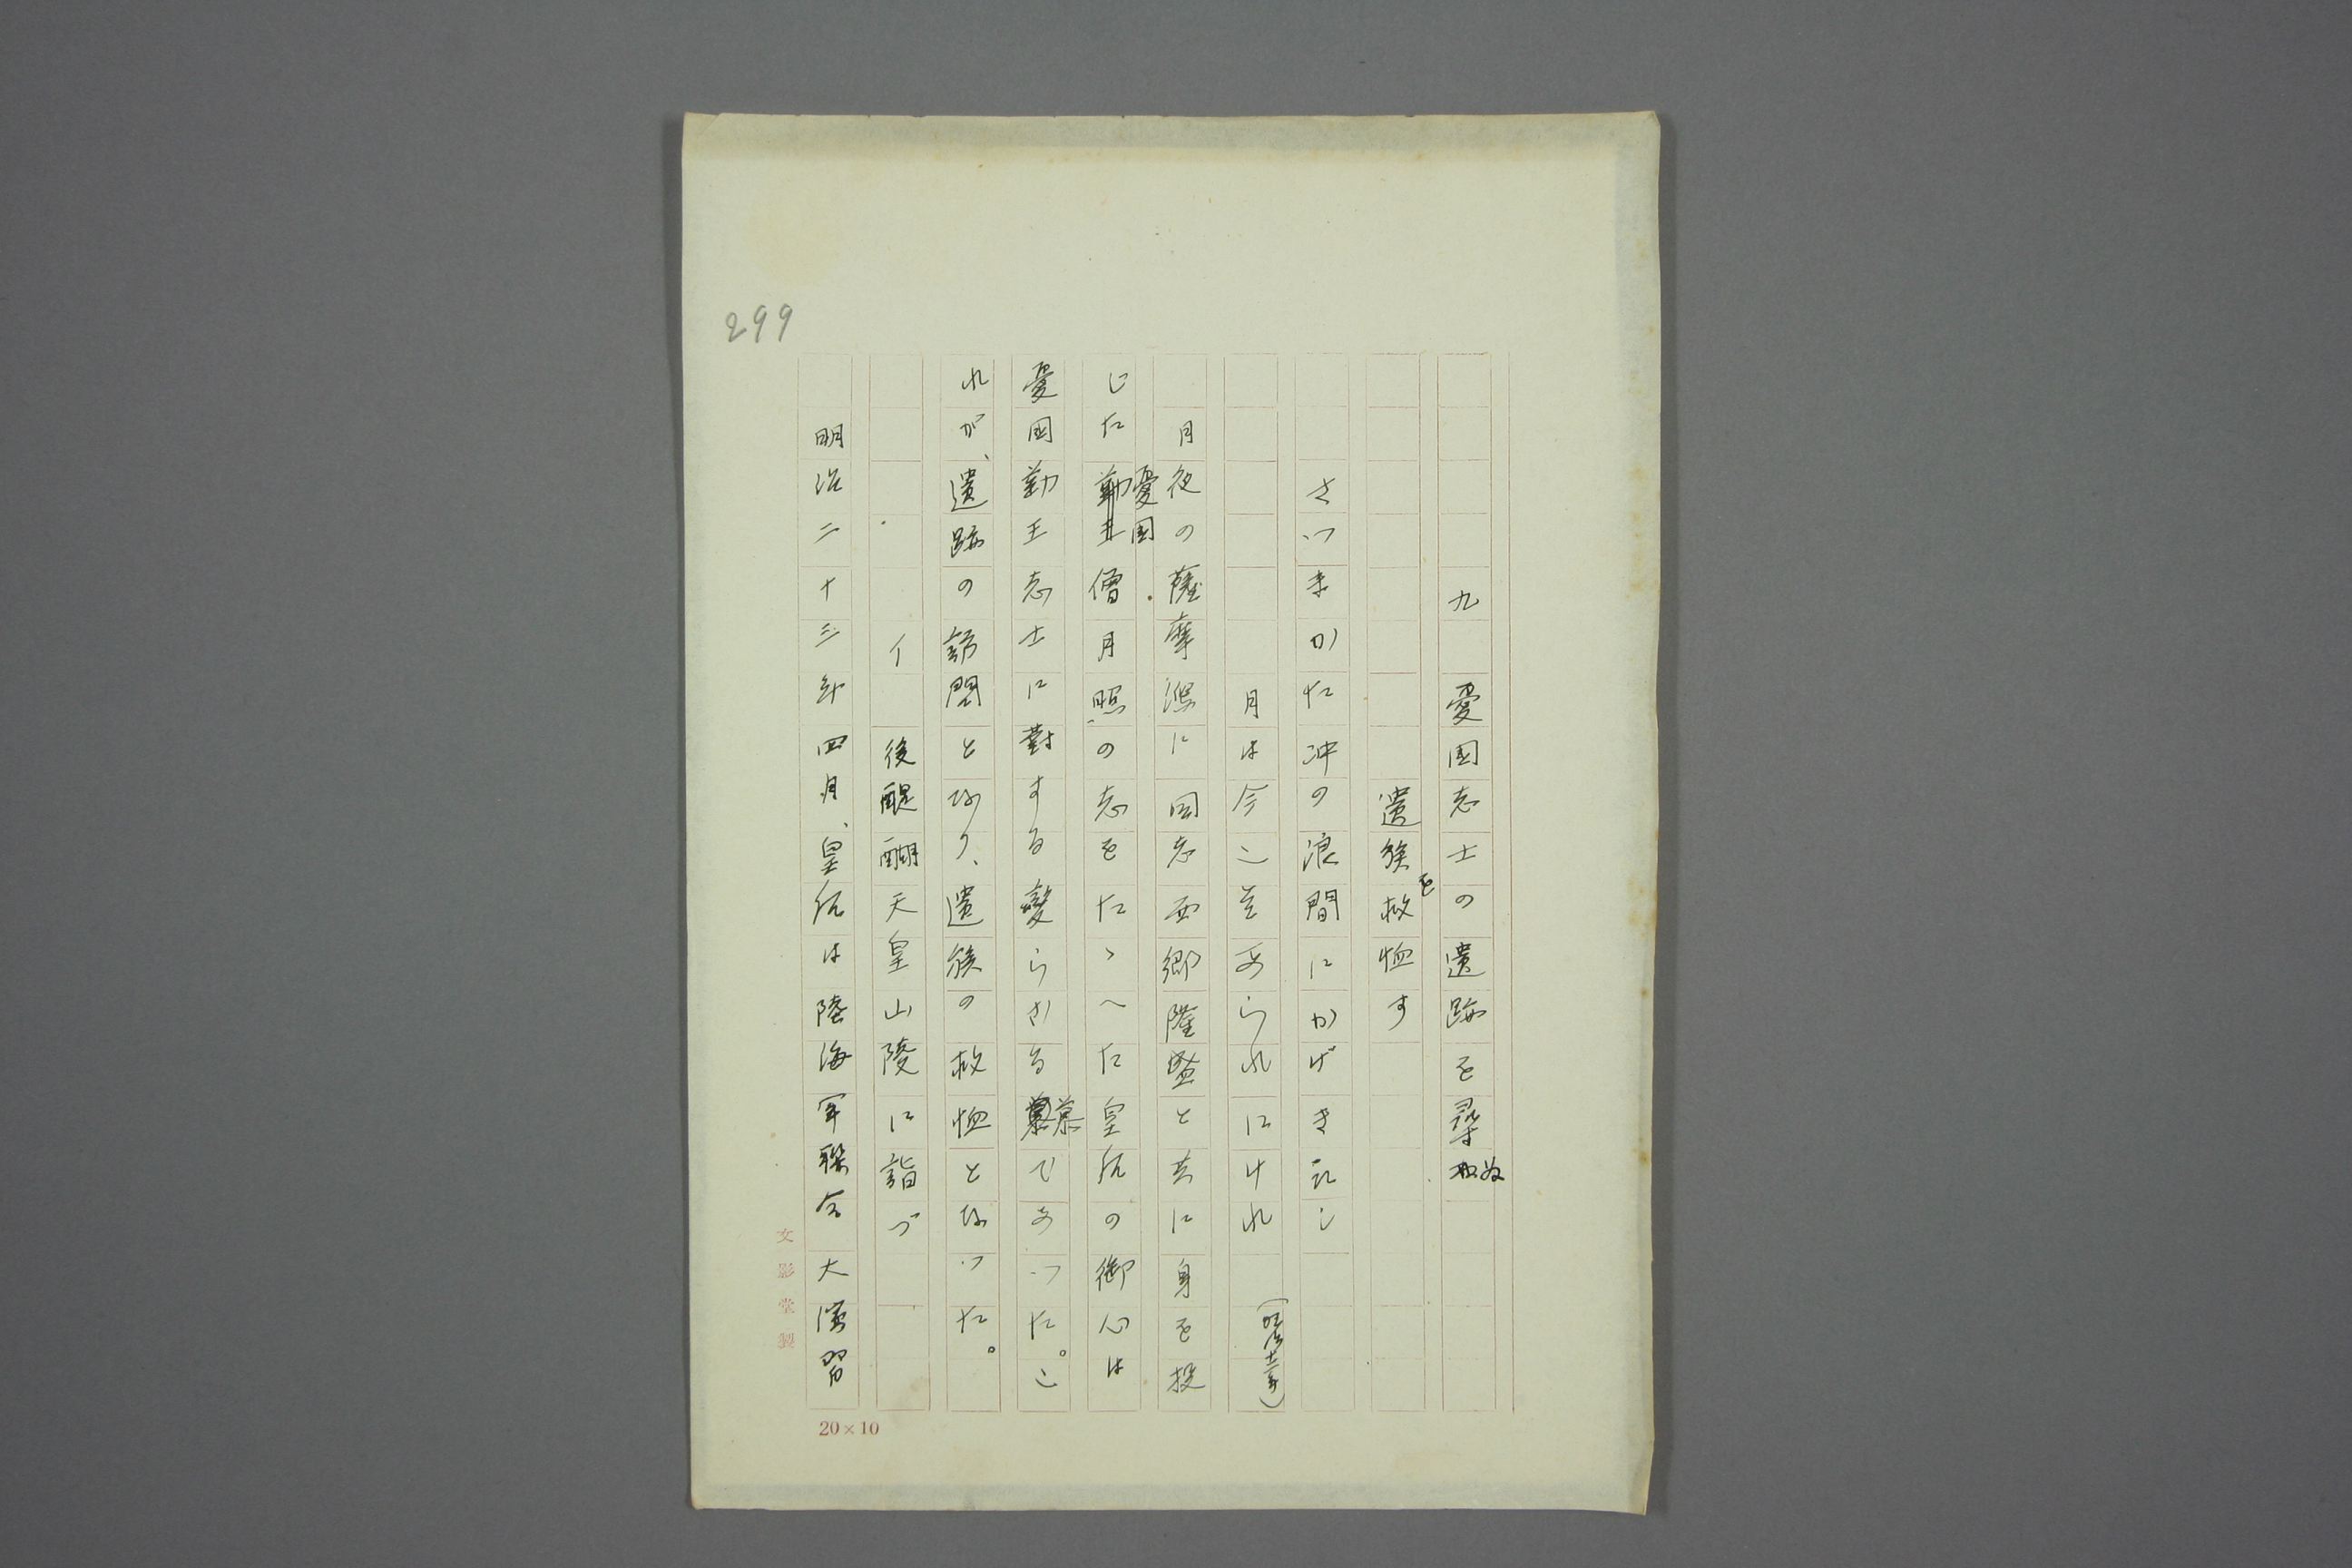 299
九　憂国志士の遺跡を尋ぬ
遺族を救恤す
さつまかた沖の浪間にかげきえし
月は今こそあらわれにけれ　(明治十二年)
月夜の薩摩潟に同志西郷隆盛と共に身を投
じた憂国僧月照の志をたゝへた皇后の御心は
憂国勤王志士に対する変らざる慕であつた。こ
れが、遺跡の訪問となり、遺族の救恤となつた。
イ　後醍醐天皇山陵に詣づ
明治二十三年四月、皇后は陸海軍聯合大演習
文影堂製
20×10